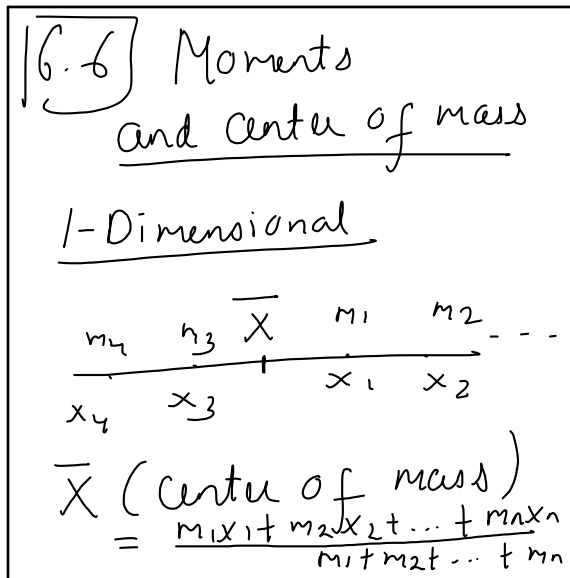 6.6 Moments
and center of mass
1-Dimensional
m4 m3 X̅ m1 m2 ---
x4 x3 x1 x2
X̅ (center of mass)
= m1x1 + m2x2 + ... + mnxn
m1 + m2 + ... + mn